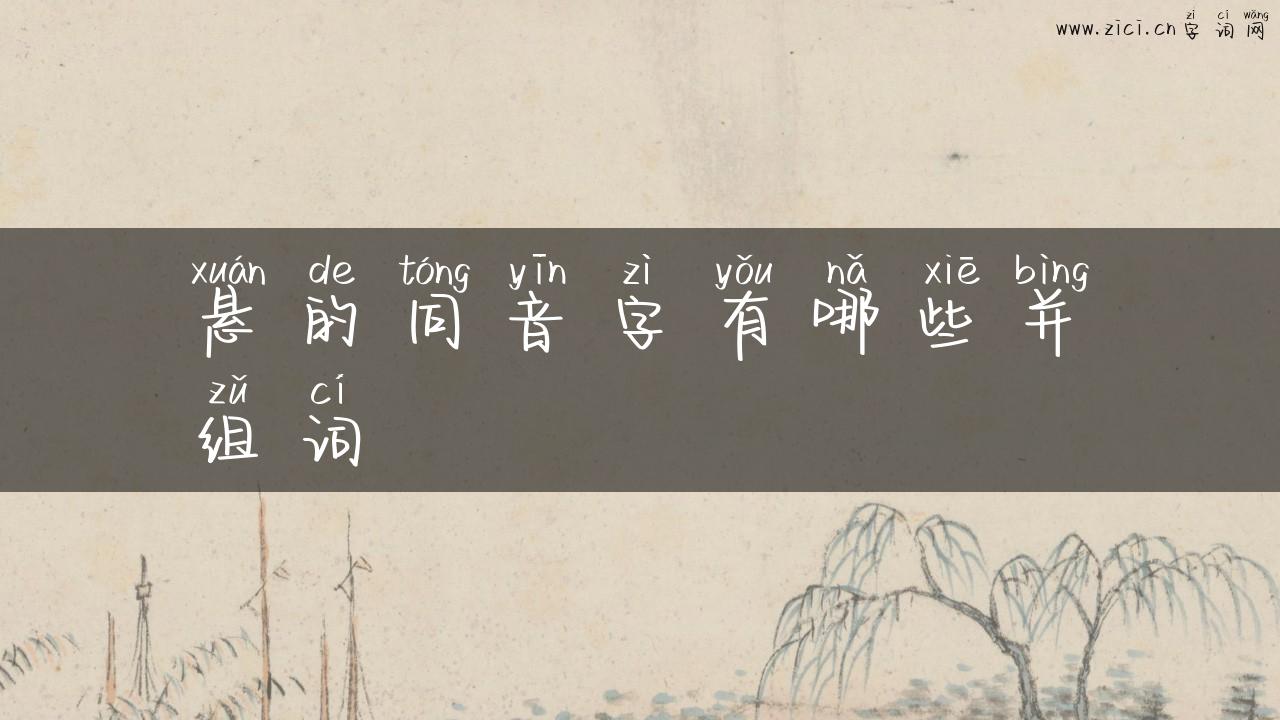 zì cí wǎng
www.zici.cn 字词网
xuán de tóng yīn zì yǒu nǎ xiē bìng
悬的同音字有哪些并
zǔ cí
组词